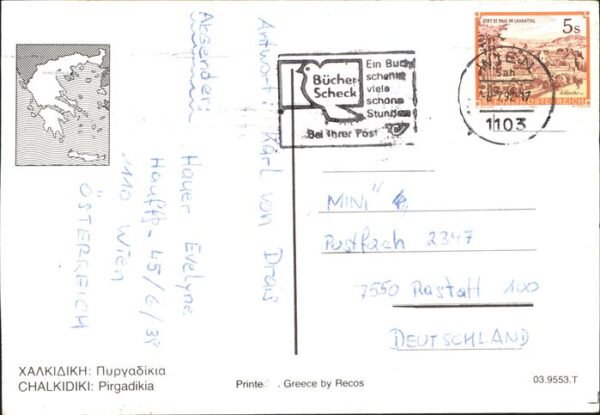 Absender:
Antwort: Karl von Drais
Hauer Evelyne
Hauffg. - 45/6/38
1110 Wien
ÖSTERREICH
Ein Buch
schenkt
viele
schöne
Stunden
Bücher
Scheck
Bei Ihrer Post
STIFT ST. PAUL IM LAVANTTAL
5 S
ÖSTERREICH
WIEN
1103
"MINI"
Postfach 2347
7550 Rastatt 100
DEUTSCHLAND
ΧΑΛΚΙΔΙΚΗ: Πυργαδίκια
CHALKIDIKI: Pirgadikia
Printe Greece by Recos
03.9553.T